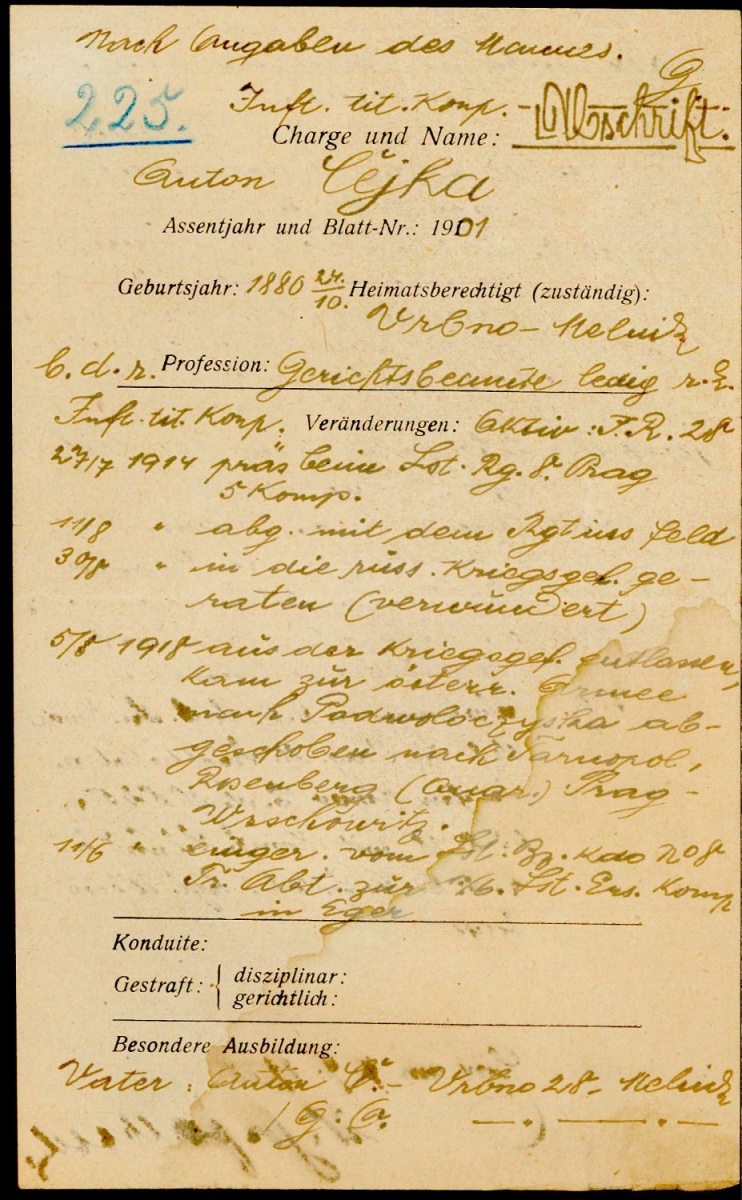 Nach Angaben des Mannes.
G
225. Inft. tit. Korp. - Abschrift.
Charge und Name:
Anton Čejka
Assentjahr und Blatt-Nr.: 1901
Geburtsjahr: 1880 24./10. Heimatsberechtigt (zuständig):
Vrbno - Melnik
b. d. r. Profession: Gerichtsbeamte ledig r. k.
Inft. tit. Korp. Veränderungen: Aktiv: I. R. 28
27/7 1914 präs beim Lst. Rg. 8. Prag
5 Komp.
11/8 " abg. mit dem Rgt ins Feld
30/8 " in die russ. Kriegsgef. ge-
raten (verwundert)
5/5 1918 aus der Kriegsgef. entlassen,
kam zur österr. Armee
nach Podwoloczyska ab-
geschoben nach Tarnopol,
Rosenberg (Quar.) Prag -
Wrschowitz.
11/6 " einger. vom Lst. Bz. Kdo No 8
Tr. Abt. zur Lst. Ers. Komp
in Eger
Konduite:
Gestraft: { disziplinar:
gerichtlich:
Besondere Ausbildung:
Vater: Anton Č. - Vrbno 28 - Melnik
/ G: A. — " — " —